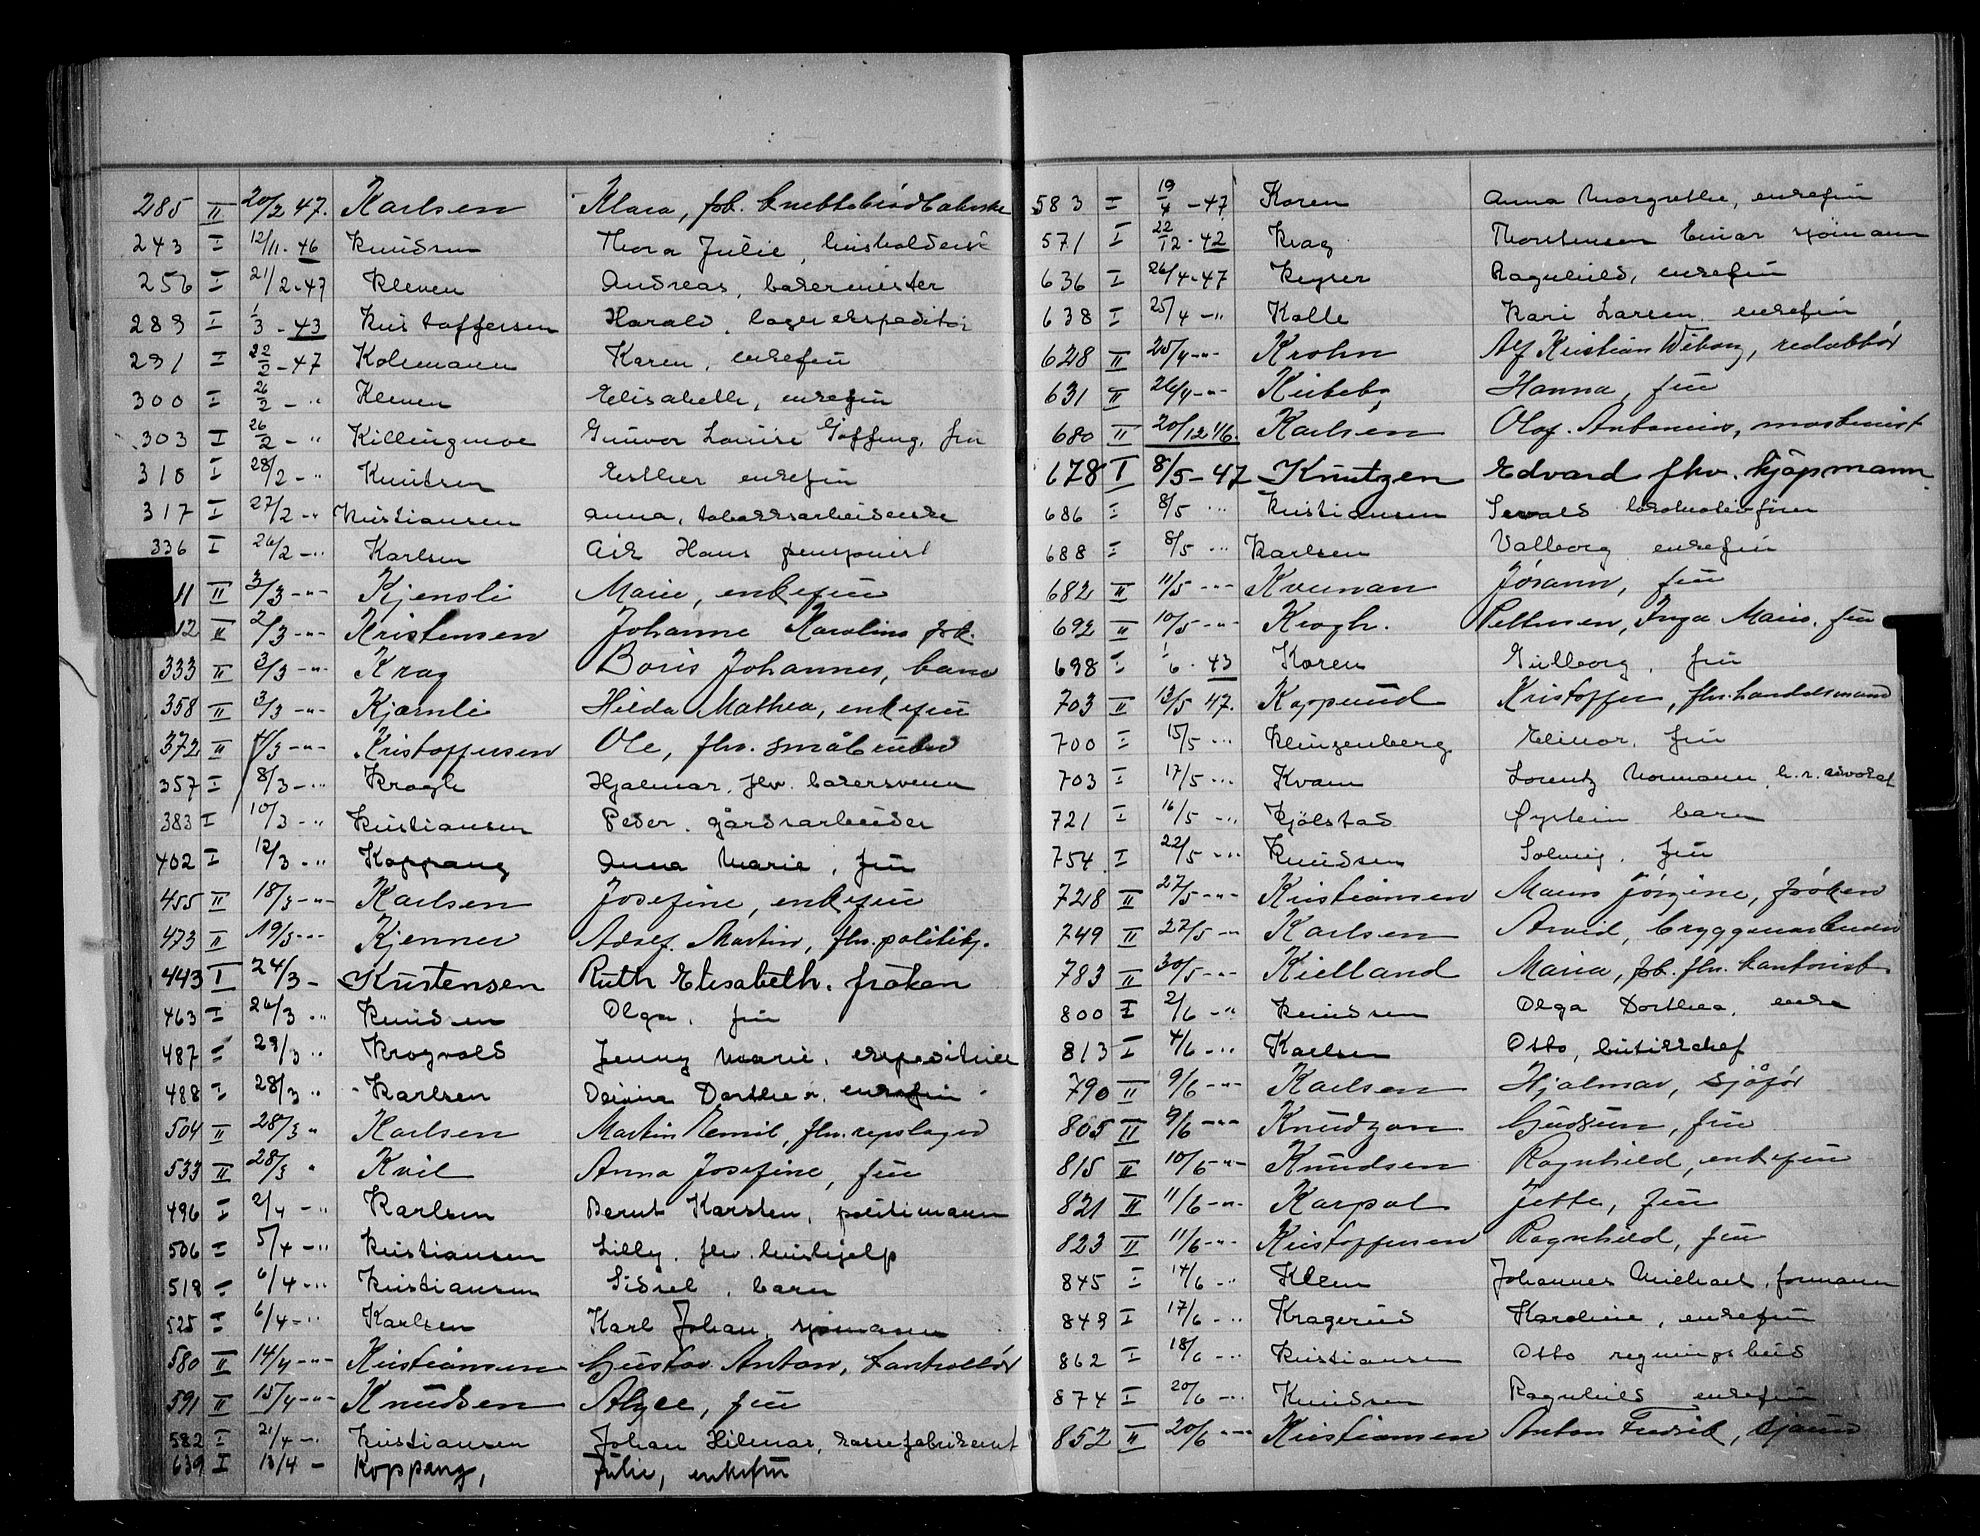 285 II 20/2 47. Karlsen Klara, frk.
243 I 12/11-46 Knudsen Thora Julie, husholderske
256 I 21/2-47 Kleven Andreas, bakermester
289 I 1/3-43 Kristoffersen Harald, lagerekspeditør
291 I 22/2-47 Karen, enkefru
300 I 26/2 - " Kleven Elisabeth, enkefru
303 I 26/2 - " Killingmoe Gunvor Louise fru
310 I 28/2 - " Knutsen Esther enkefru
317 I 27/2 - " Kristiansen Anna, tobakksarbeiderske
336 I 26/2 - " Karlsen Hans pensjonist
11 II 3/3 - " Kjensli Marie, enkefru
12 II 2/3 - " Kristensen Johanne Karoline frk.
333 II 3/3 - " Krag Boris Johannes, barn
358 II 3/3 - " Kjærnli Hilda Mathea, enkefru
372 II 4/3 - " Kristoffersen Ole, fhv. småbruker
357 I 8/3 - " Krogh Hjalmar, fhv. bakersvenn
383 I 10/3 - " Kristiansen Peder, gårdsarbeider
402 I 12/3 - " Koppang Anna Marie, fru
455 II 18/3 - " Karlsen Josefine, enkefru
473 II 19/3 - " Kjenner Martin, fhv. politikj.
443 I 24/3 - Kristensen Ruth Elisabeth. frøken
463 I 26/3 - " Knudsen Olga, fru
487 I 29/3 " Krogvold Jenny Marie, ekspeditrise
488 I 28/3 " Karlsen Dorthea, enkefru
504 II 28/3 " Karlsen Martin Emil, fhv. repslager
533 II 28/3 " Kvil Anna Josefine, fru
496 I 2/4 - " Karlsen Bernt Karsten, politimann
506 I 5/4 - " Kristiansen Lilly, fhv. hushjelp
519 I 6/4 - " Kristiansen Sidsel, barn
525 I 6/4 - " Karlsen Karl Johan, sjømann
580 II 14/4 - " Kristiansen Gustav Anton, kontrollør
591 II 15/4 - " Knudsen Alyce, fru
582 I 21/4 - " Kristiansen Johan Hilmar,
639 I 13/4 - Koppang, Julie, enkefru
583 I 19/4 - 47 Koren Anna Margrethe, enkefru
571 I 22/12 - 42 Krag Thorstensen Einar sjømann
636 I 26/4-47 Keyser Ragnhild, enkefru
638 I 25/4 - " Kolle Kari Larsen, enkefru
628 II 25/4 - " Krohn Alf Kristian Wiborg, redaktør
631 II 26/4 - " Hanna, fru
680 II 20/12 46. Karlsen Olaf Antonius, maskinist
678 I 8/5-47 Knutzen Edvard fhv. kjøpmann
686 I 8/5 - " Kristiansen Sevald
688 I 8/5 - " Karlsen Valborg enkefru
682 II 11/5 - " Kvernan fru
692 II 10/5 - " Krogh. Pettersen, Inga Marie, fru
698 I 1/6 - 43 Koren Gullborg, fru
703 II 12/5 47. Kopperud Kristoffer, fhv. handelsmand
700 I 15/5 - " Klingenberg Elinor, fru
703 I 17/5 - " Kvam Lorentz Normann h.r.advokat
721 I 16/5 - " Kjølstad Øystein barn
754 I 22/5 - " Knudsen Solveig, fru
728 II 27/5 - " Kristiansen Jørgine, frøken
749 II 27/5 - " Karlsen Arvid, bryggeriarbeider
783 II 30/5 - " Kielland Maria, frk. fhv. kontorist
800 I 2/6 - " Knudsen Olga Dorthea, enke
813 I 4/6 - " Karlsen Otto, butikkchef
790 II 9/6 - " Karlsen Hjalmar, sjåfør
805 II 9/6 - " Knudzon Gudrun, fru
815 II 10/6 - " Knudsen Ragnhild, enkefru
821 II 11/6 - " Karpol Jette, fru
823 II 11/6 - " Kristoffersen Ragnhild, fru
845 I 14/6 - " Johannes Michael, formann
849 I 17/6 - " Kragerud Karoline, enkefru
862 I 18/6 - " Kristiansen Otto regningsbud
874 I 20/6 - " Knudsen Ragnhild enkefru
852 II 20/6 - " Kristiansen Anton Fredrik,